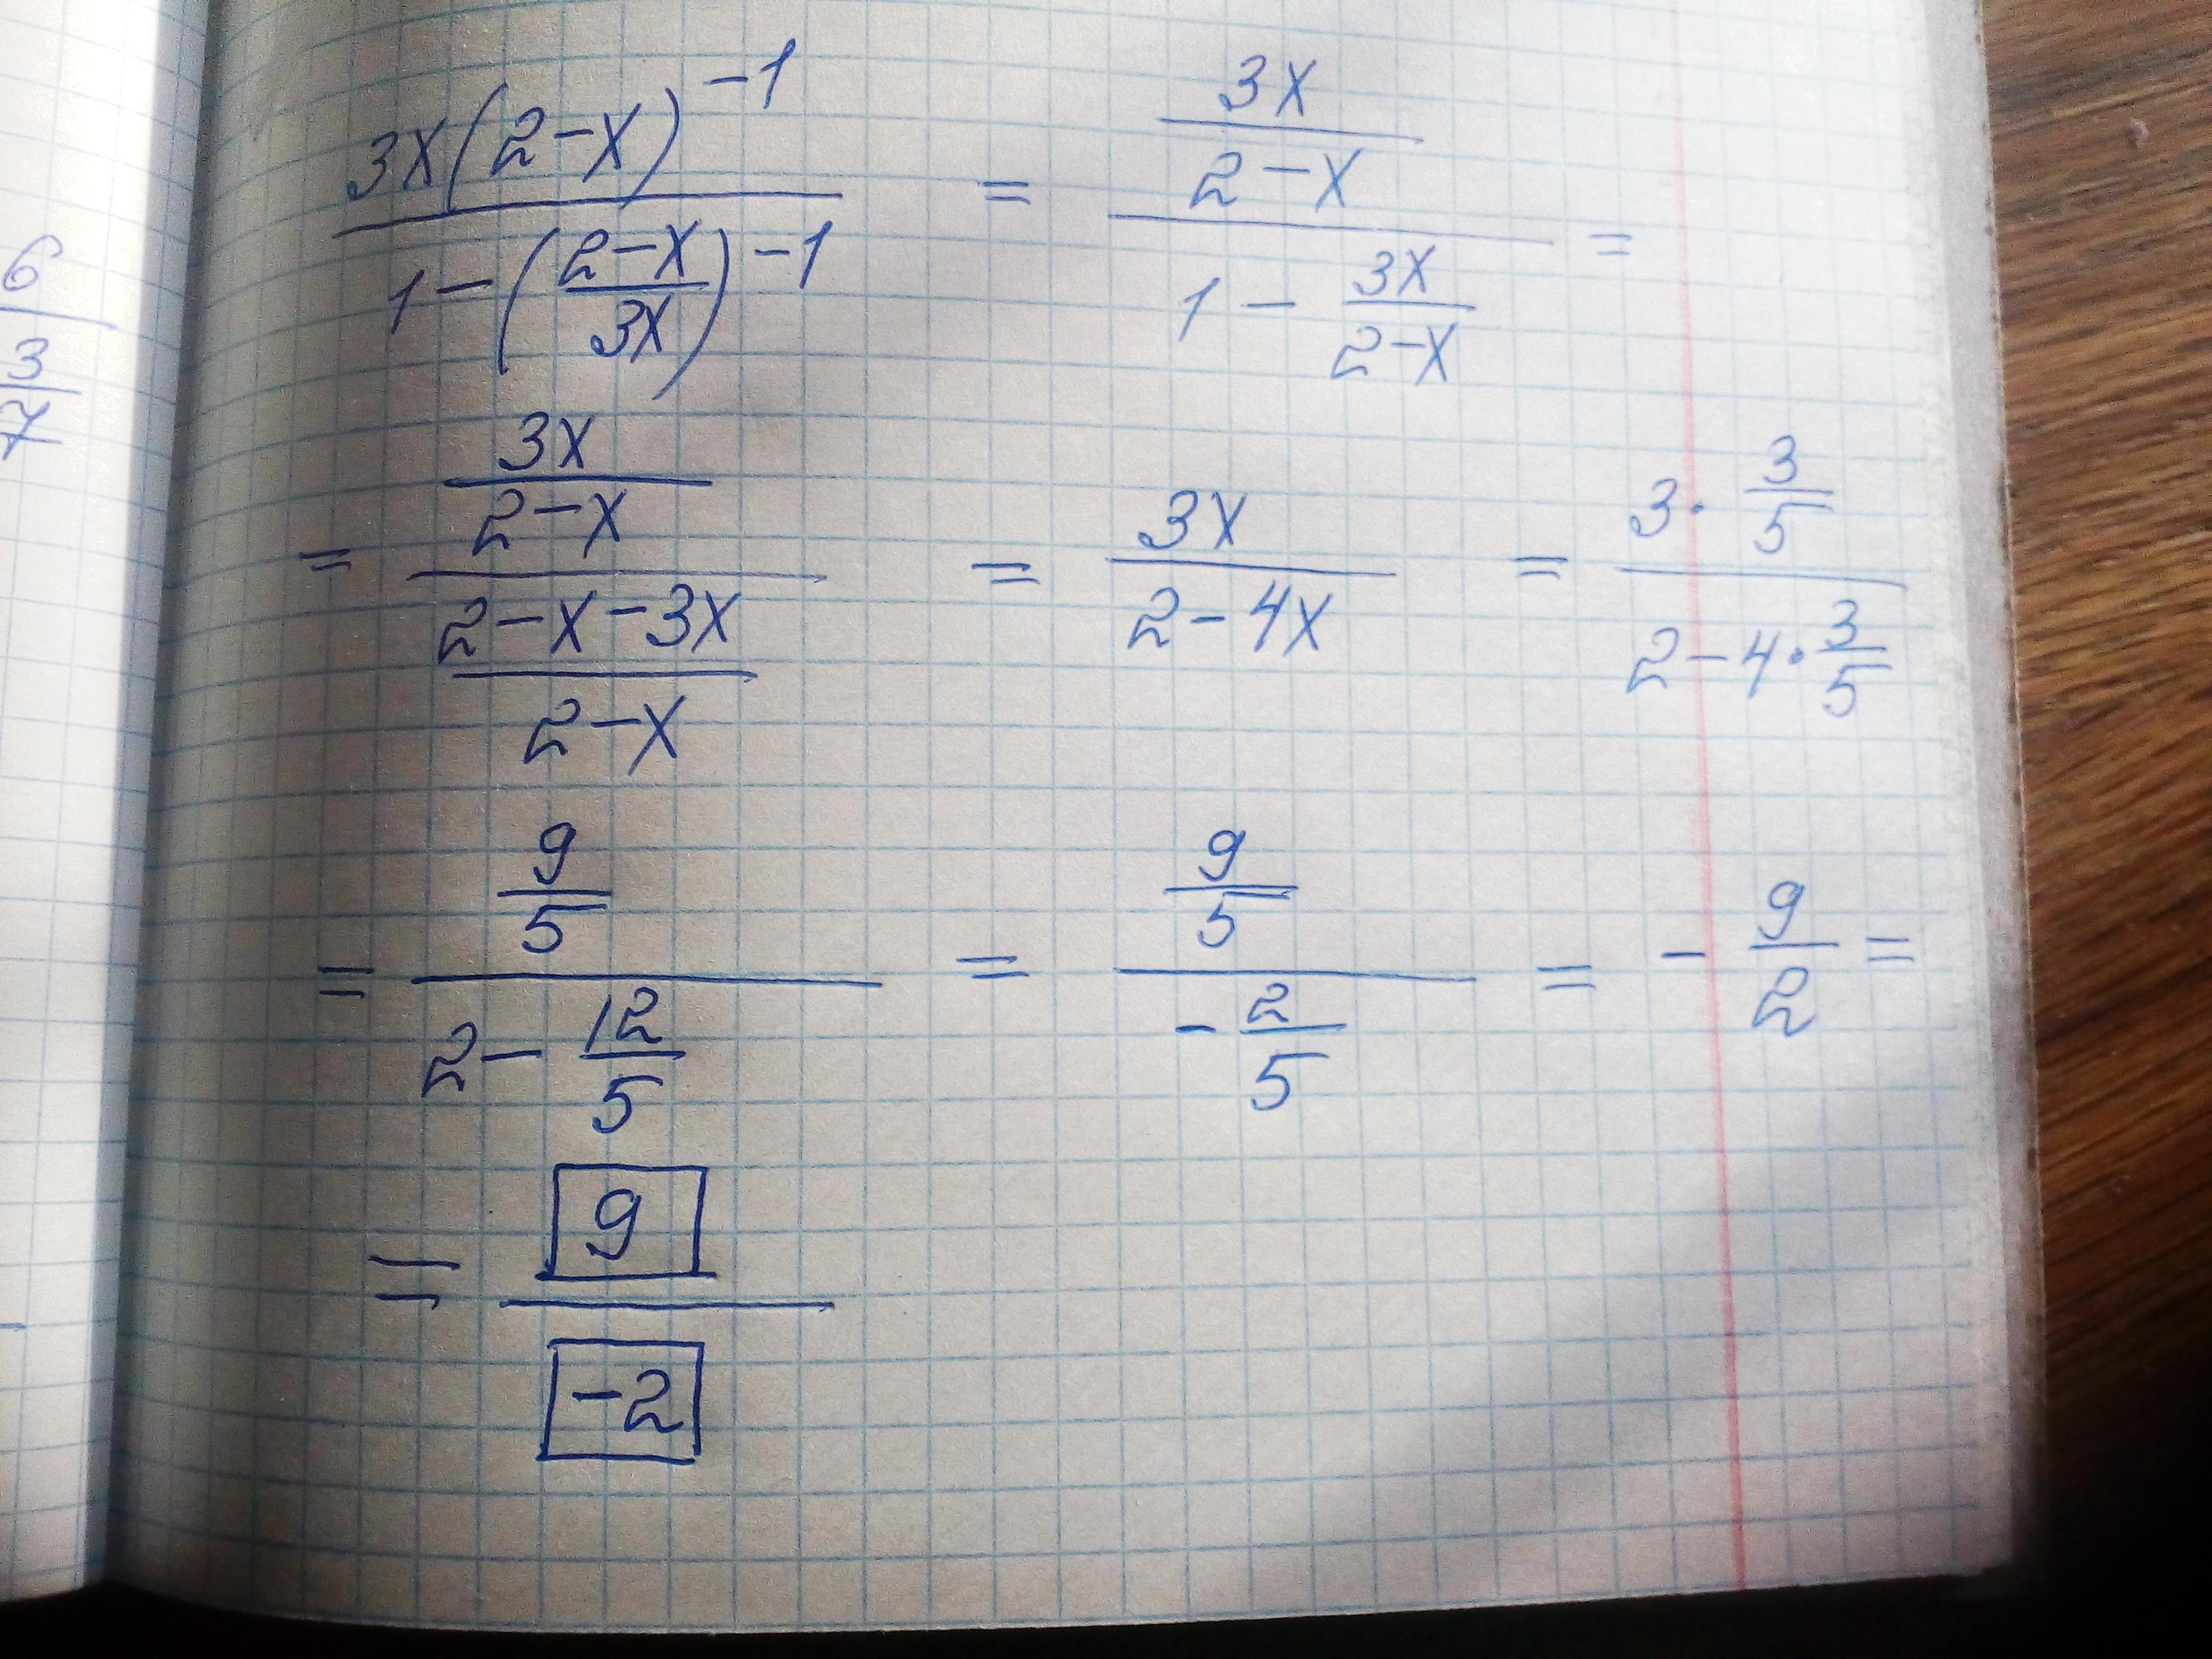 6
3
7
3x(2-x)^-1 / 1-((2-x)/3x)^-1 = (3x/(2-x)) / (1 - 3x/(2-x)) =
= (3x/(2-x)) / ((2-x-3x)/(2-x)) = 3x/(2-4x) = (3·3/5) / (2-4·3/5)
= (9/5) / (2-12/5) = (9/5) / (-2/5) = -9/2 =
= 9 / -2